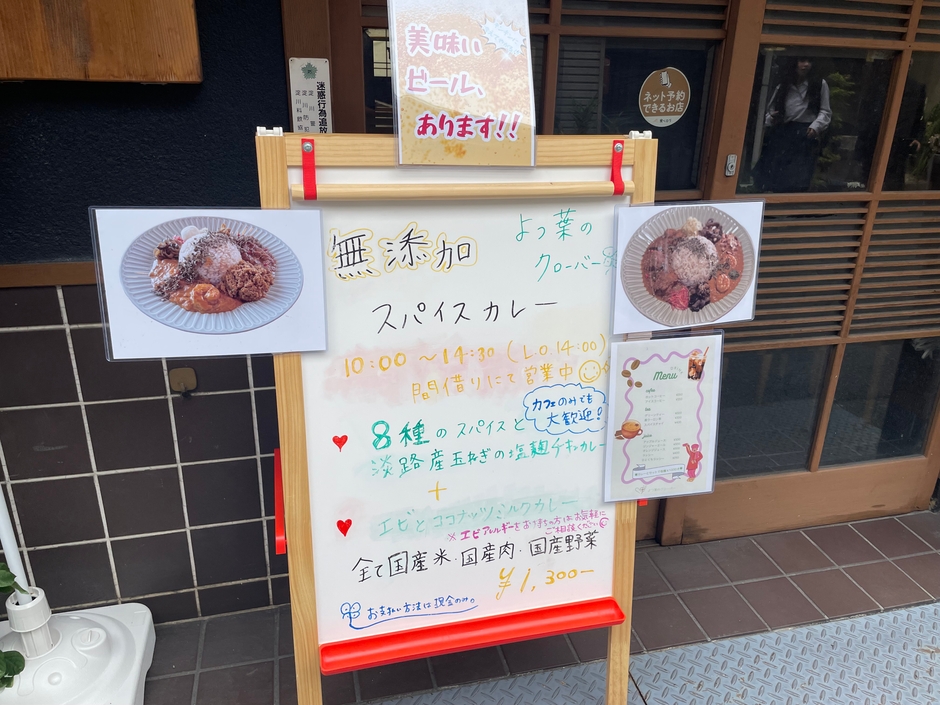 美味い
ビール、
あります!!
迷惑行為追放
ネット予約
できるお店
無添加
よつ葉の
クローバー
スパイスカレー
10:00～14:30(L.O.14:00)
間借りにて営業中
カフェのみでも
大歓迎!
8種のスパイスと
淡路産玉ねぎの塩麹チキンカレー
+
エビとココナッツミルクカレー
※エビアレルギーをお持ちの方はお気軽に
ご相談ください
全て国産米・国産肉・国産野菜
¥1,300-
お支払い方法は現金のみ。
Menu